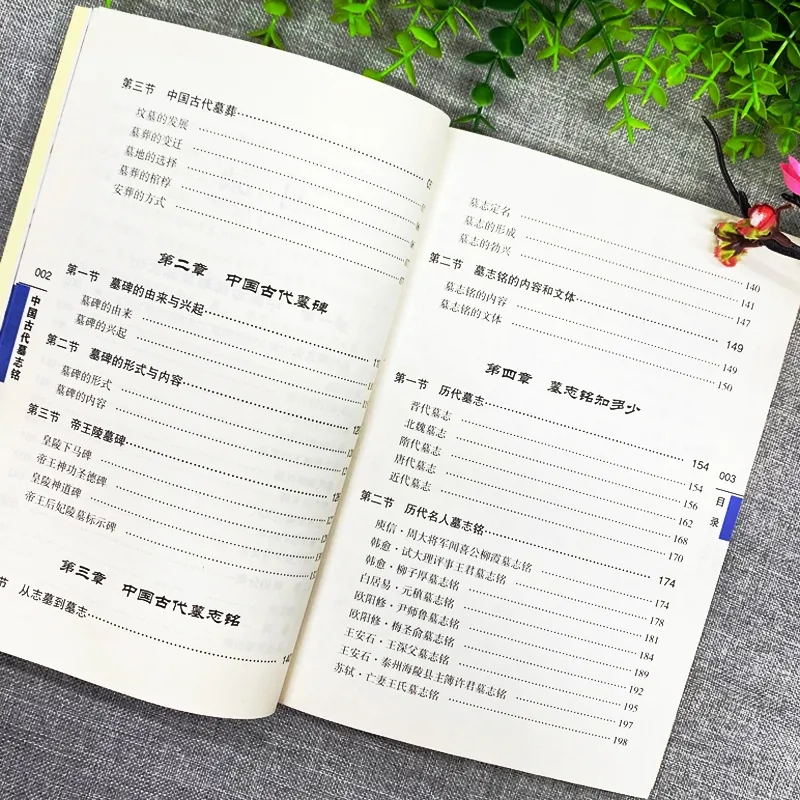 第三节 中国古代墓葬
坟墓的发展
墓葬的变迁
墓地的选择
墓葬的棺椁
安葬的方式
第二章 中国古代墓碑
第一节 墓碑的由来与兴起
墓碑的由来
墓碑的兴起
第二节 墓碑的形式与内容
墓碑的形式
墓碑的内容
第三节 帝王陵墓碑
皇陵下马碑
帝王神功圣德碑
皇陵神道碑
帝王后妃陵墓标示碑
第三章 中国古代墓志铭
节 从志墓到墓志
002
中国古代墓志铭
墓志定名 140
墓志的形成 141
墓志的勃兴 147
第二节 墓志铭的内容和文体 149
墓志铭的内容 149
墓志铭的文体 150
第四章 墓志铭知多少
第一节 历代墓志 154
晋代墓志 154
北魏墓志 156
隋代墓志 162
唐代墓志 168
近代墓志 170
第二节 历代名人墓志铭 174
庾信·周大将军闻喜公柳霞墓志铭 174
韩愈·试大理评事王君墓志铭 178
韩愈·柳子厚墓志铭 181
白居易·元稹墓志铭 184
欧阳修·尹师鲁墓志铭 189
欧阳修·梅圣俞墓志铭 192
王安石·王深父墓志铭 195
王安石·泰州海陵县主簿许君墓志铭 197
苏轼·亡妻王氏墓志铭 198
003
目录